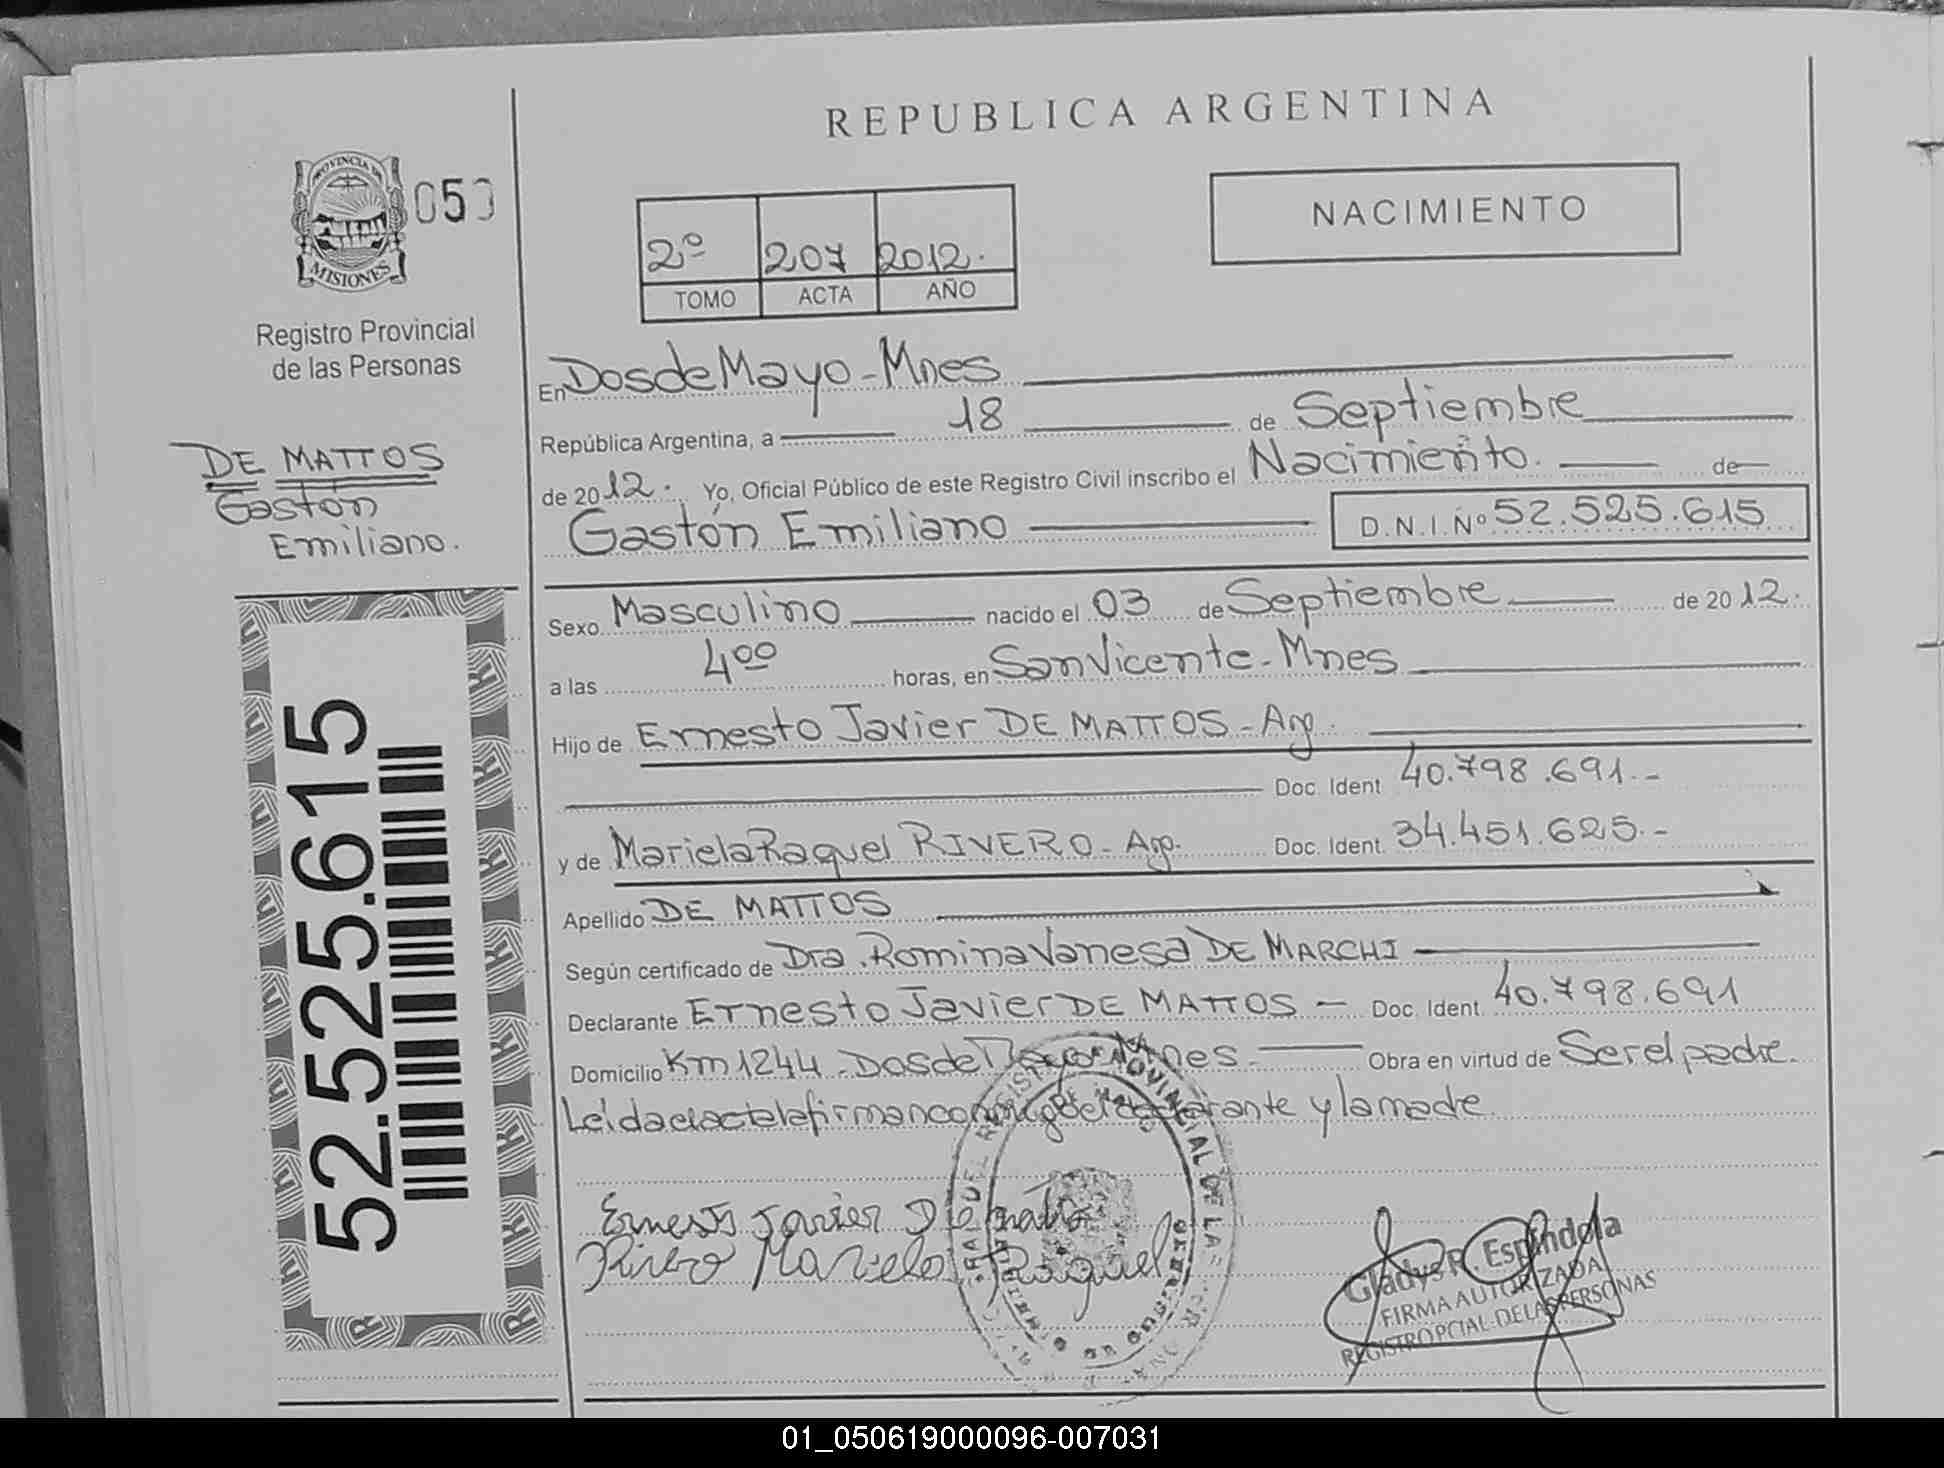 REPUBLICA ARGENTINA
PROVINCIA DE
MISIONES
050
Registro Provincial
de las Personas
2º 207 2012.
TOMO ACTA AÑO
NACIMIENTO
DE MATTOS
Gastón
Emiliano.
52.525.615
En Dos de Mayo - Mnes
República Argentina, a 18 de Septiembre
de 2012. Yo, Oficial Público de este Registro Civil inscribo el Nacimiento. de
Gastón Emiliano D.N.I.Nº 52.525.615
Sexo Masculino nacido el 03 de Septiembre de 2012.
a las 4 00 horas, en San Vicente - Mnes
Hijo de Ernesto Javier DE MATTOS - Arg.
Doc. Ident 40.798.691.-
y de Mariela Raquel RIVERO - Arg. Doc. Ident. 34.451.625.-
Apellido DE MATTOS
Según certificado de Dra. Romina Vanesa DE MARCHI
Declarante Ernesto Javier DE MATTOS - Doc. Ident. 40.798.691
Domicilio Km 1244 - Dos de Mayo - Mnes - Obra en virtud de Ser el padre.
Leida el acta la firman conmigo el declarante y la madre
Ernesto Javier De mattos
Rivero Mariela Raquel
Gladys R. Espíndola
FIRMA AUTORIZADA
REGISTRO PCIAL. DE LAS PERSONAS
01_050619000096-007031